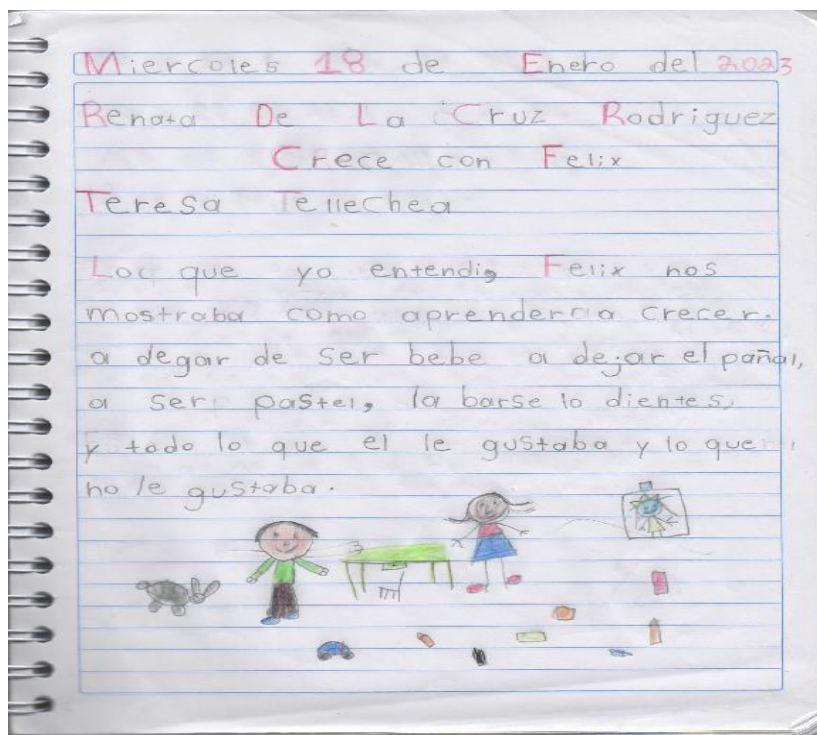 Miercoles 18 de Enero del 2023
Renata De La Cruz Rodriguez
Crece con Felix
Teresa Tellechea
Loc que yo entendi, Felix nos
mostraba como aprendercia crecer.
a degar de ser bebe a dejar el pañal,
a ser pastel, la barse lo dientes,
y todo lo que el le gustaba y lo que
no le gustaba.